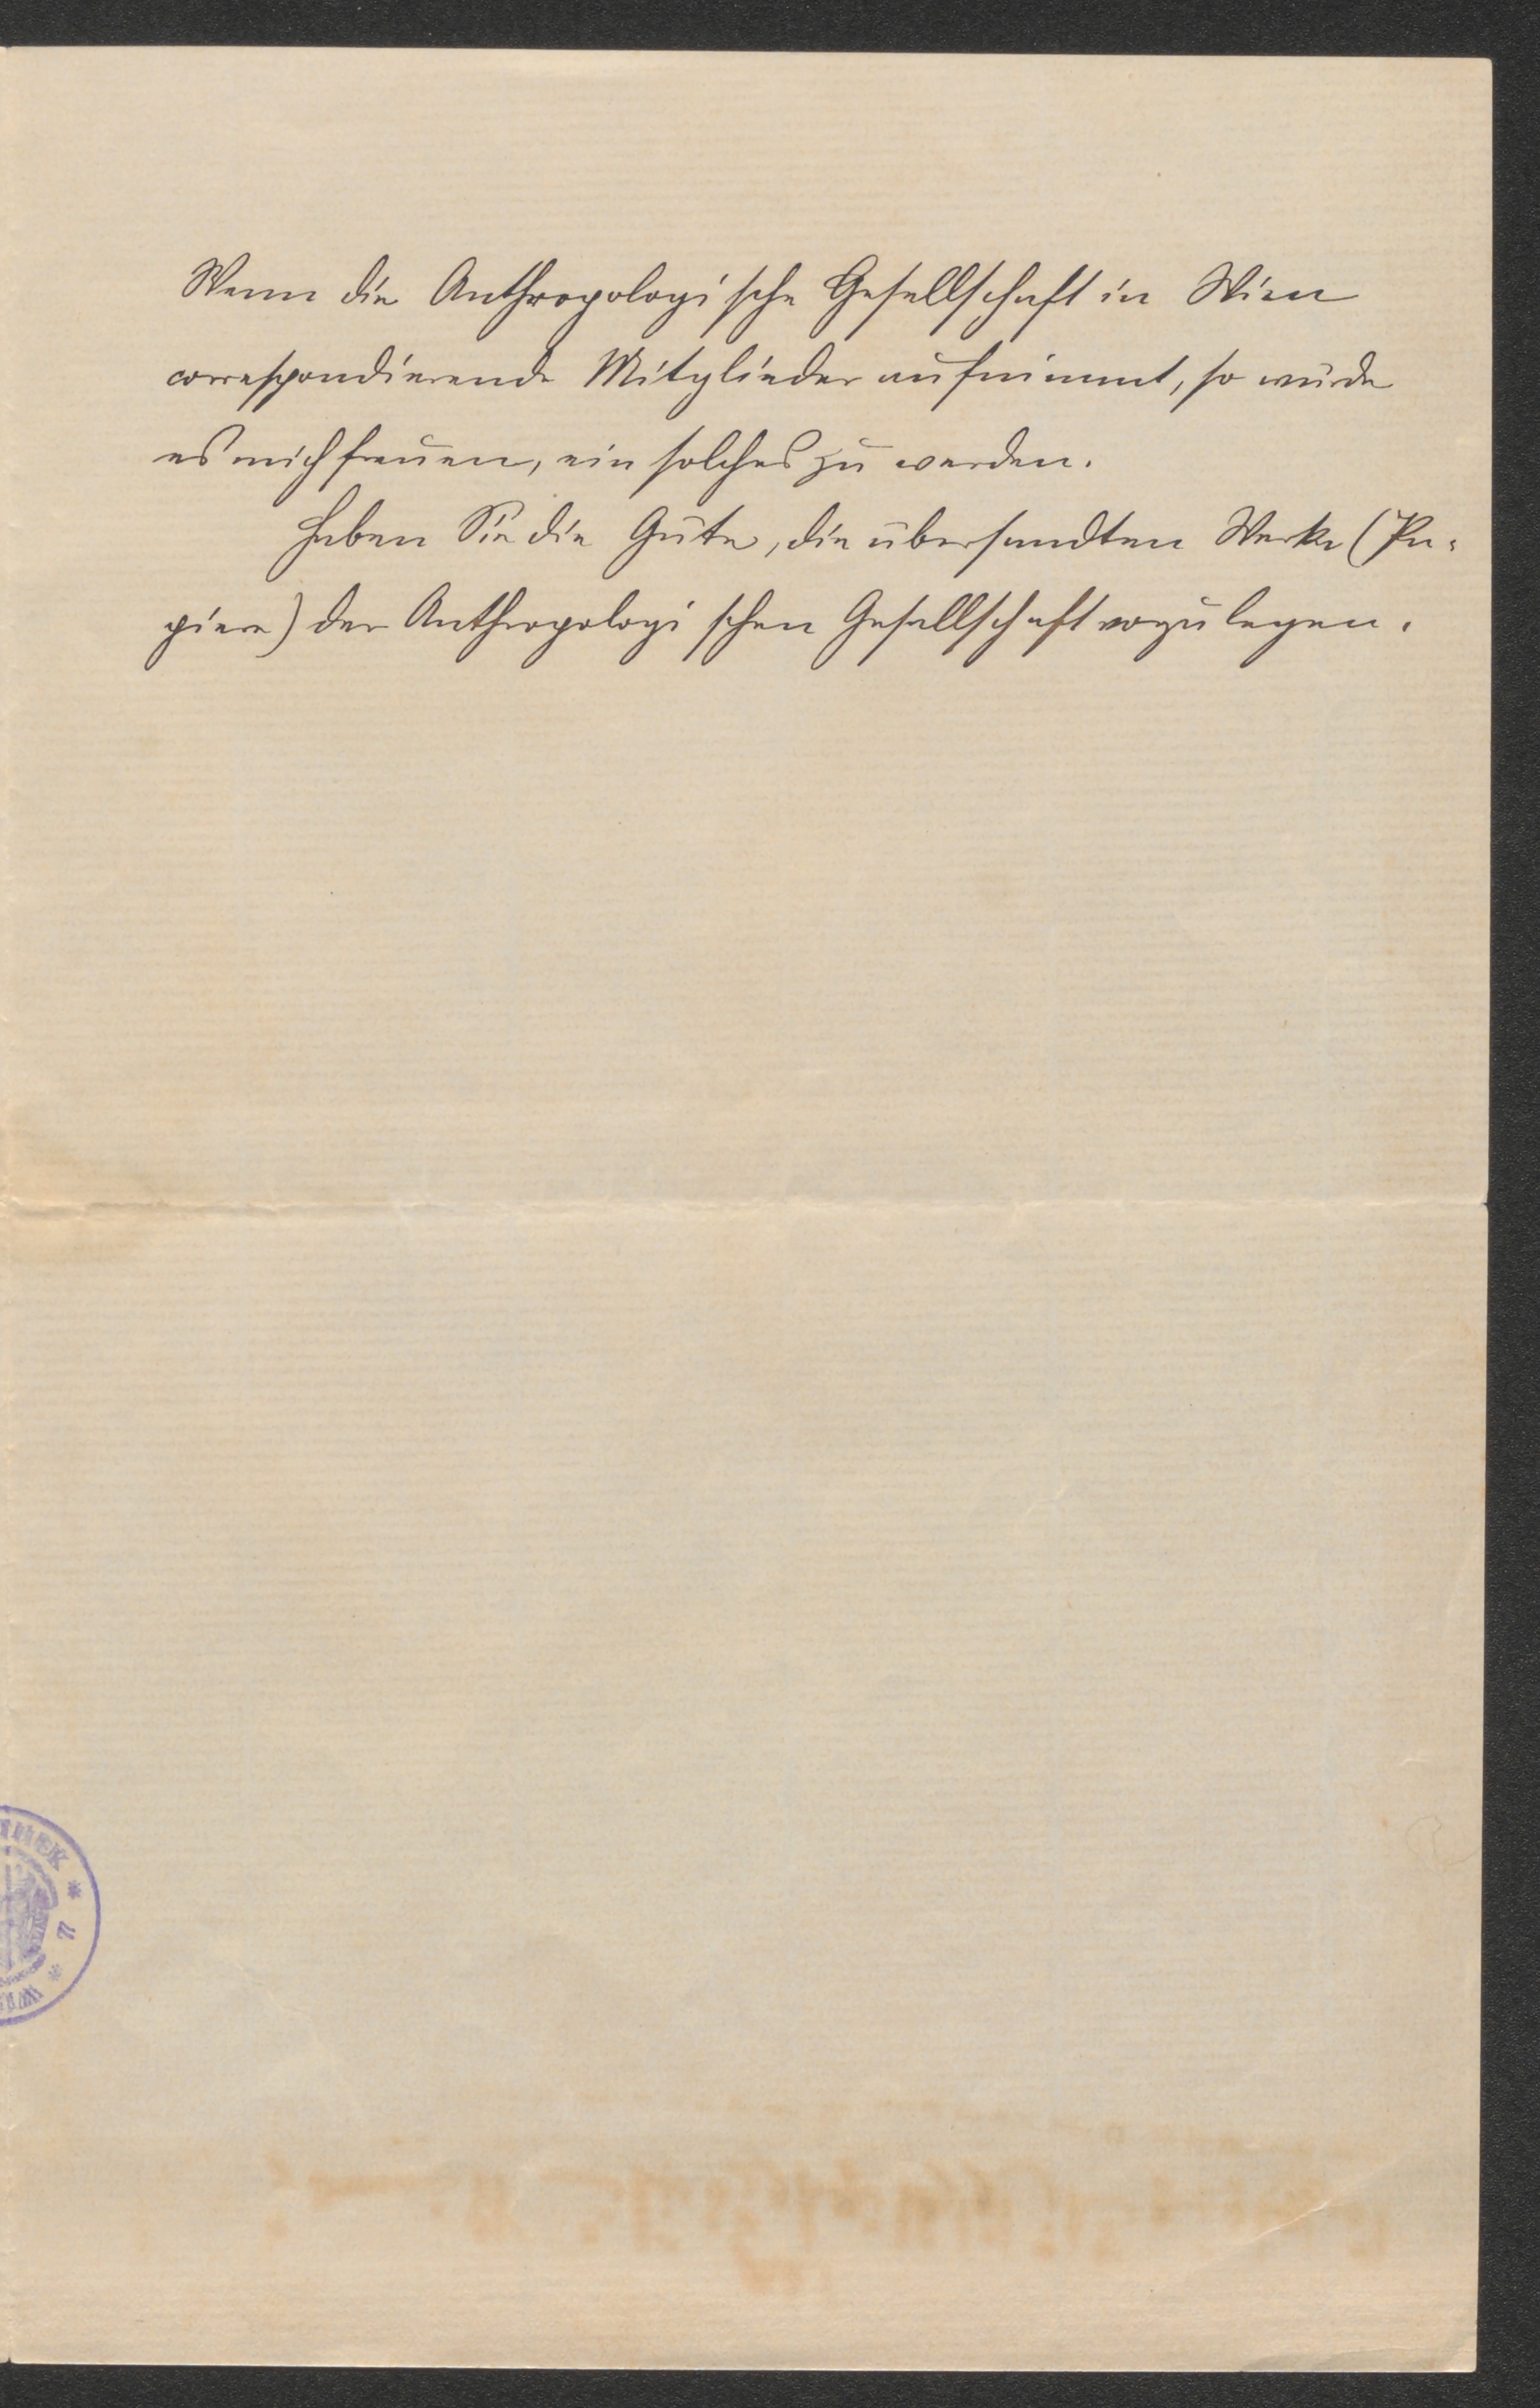 Wenn die Anthropologische Gesellschaft in Wien
correspondierende Mitglieder aufnimmt, so würde
es mich freuen, ein solches zu werden.
Haben Sie die Güte, die übersandten Werke (Pa-
piere) der Anthropologischen Gesellschaft vorzulegen.
THEK * 7 * WI